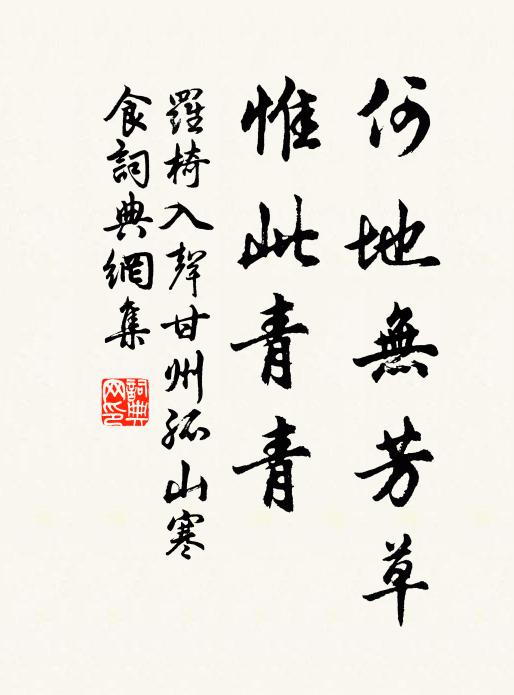 何地無芳草
惟此青青
羅椅入聲甘州孤山寒
食詞典網集
詞典
网印